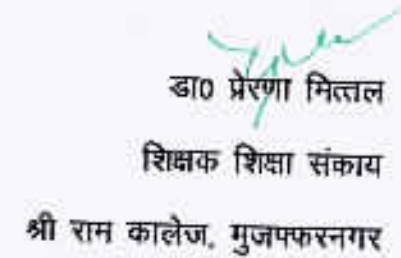 डा0 प्रेरणा मित्तल
शिक्षक शिक्षा संकाय
श्री राम कालेज, मुजफ्फरनगर